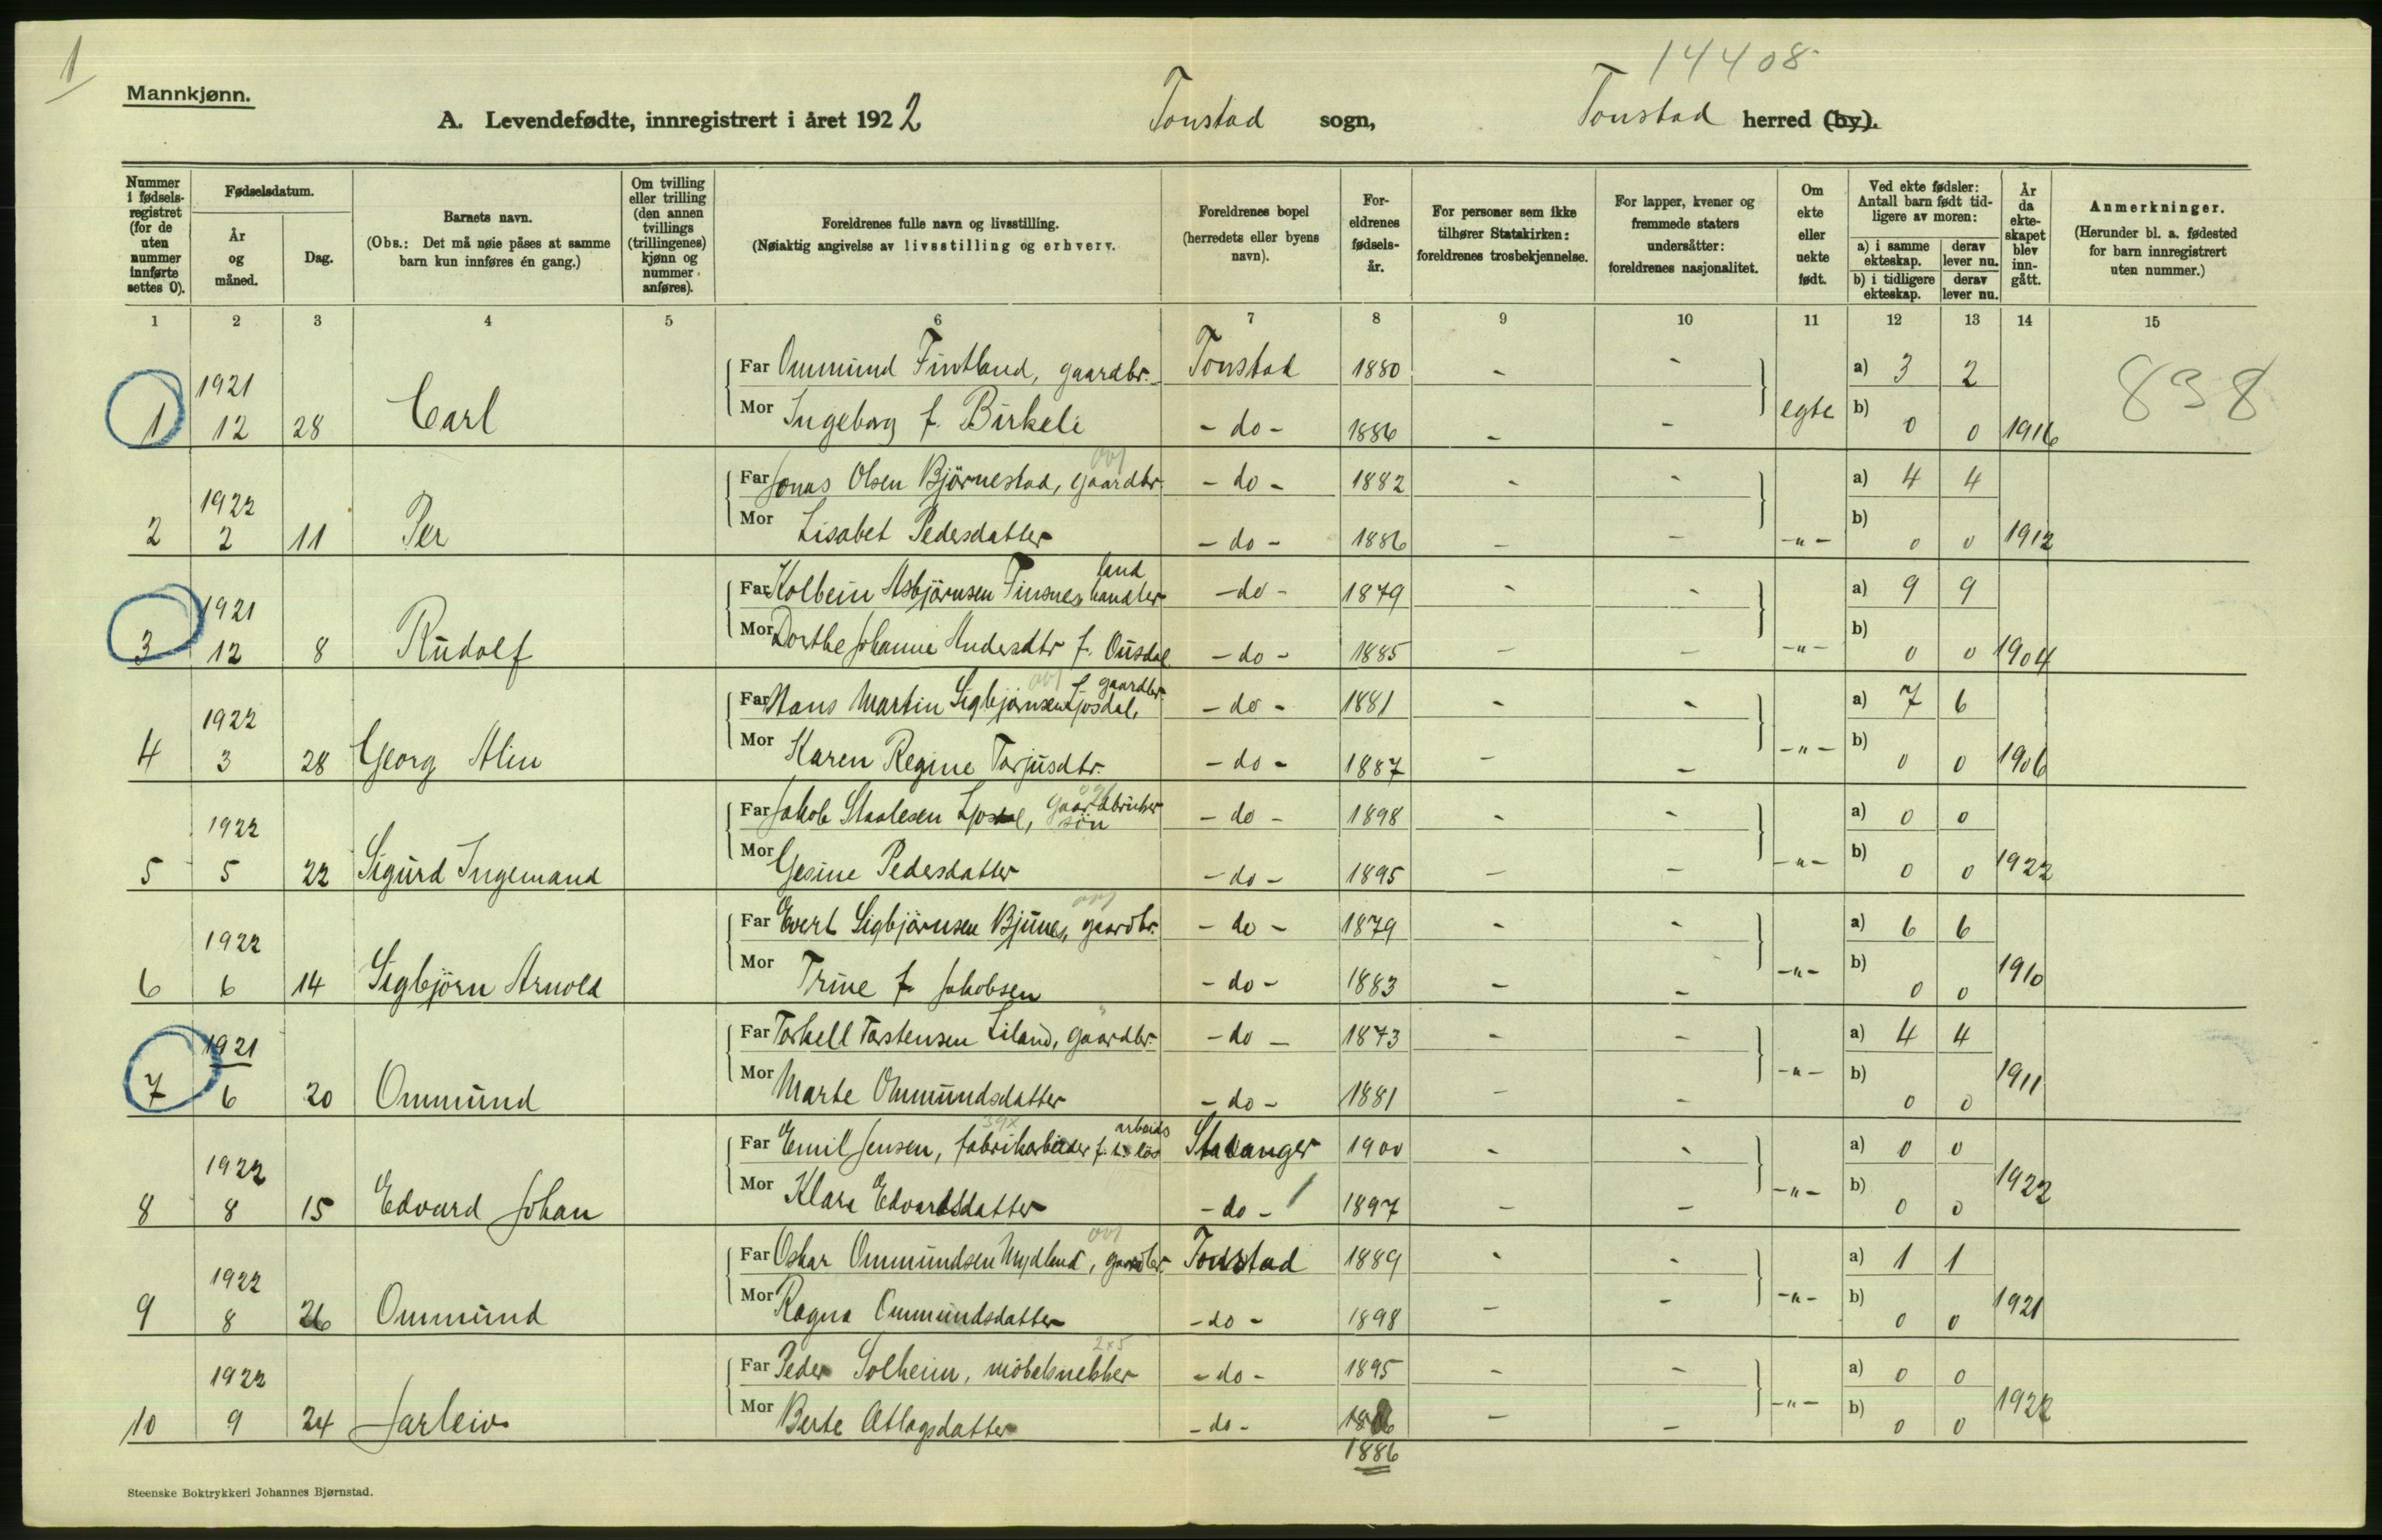 1
14408
Mannkjønn.
A. Levendefødte, innregistrert i året 1922 Tonstad sogn, Tonstad herred (by).
Nummer i fødsels-registret (for de uten nummer innførte settes 0). Fødselsdatum. År og måned. Dag. Barnets navn. (Obs.: Det må nøie påses at samme barn kun innføres én gang.) Om tvilling eller trilling (den annen tvillings (trillingenes) kjønn og nummer anføres). Foreldrenes fulle navn og livsstilling. (Nøiaktig angivelse av livsstilling og erhverv. Foreldrenes bopel (herredets eller byens navn). For-eldrenes fødsels-år. For personer som ikke tilhører Statskirken: foreldrenes trosbekjennelse. For lapper, kvener og fremmede staters undersåtter: foreldrenes nasjonalitet. Om ekte eller uekte født. Ved ekte fødsler: Antall barn født tid-ligere av moren: a) i samme ekteskap. derav lever nu. b) i tidligere ekteskap. derav lever nu. År da ekte-skapet blev inn-gått. Anmerkninger. (Herunder bl. a. fødested for barn innregistrert uten nummer.)
1 2 3 4 5 6 7 8 9 10 11 12 13 14 15
1921 Far Ommund Fintland, gaardbr. Tonstad 1880 - - a) 3 2 838
1 12 28 Carl Mor Ingeborg f. Birkeli - do - 1886 - - egte b) 0 0 1916
1922 Far Jonas Olsen Björnestad, gaardbr. - do - 1882 - - a) 4 4
2 2 11 Per Mor Lisabet Pedersdatter - do - 1886 - - -"- b) 0 0 1912
1921 Far Kolbein Asbjörnsen Finsnes landhandler - do - 1879 - - a) 9 9
3 12 8 Rudolf Mor Dorthe Johanne Andersdtr f. Ousdal - do - 1885 - - -"- b) 0 0 1904
1922 Far Hans Martin Sigbjörnsen Ljosdal, gaardbr. - do - 1881 - - a) 7 6
4 3 28 Georg Alin Mor Karen Regine Tarjusdtr. - do - 1887 - - -"- b) 0 0 1906
1922 Far Jakob Staalesen Ljosdal, gaardbruker sön - do - 1898 - - a) 0 0
5 5 22 Sigurd Ingemand Mor Gesine Pedersdatter - do - 1895 - - -"- b) 0 0 1922
1922 Far Evert Sigbjörnsen Bjunes, gaardbr. - do - 1879 - - a) 6 6
6 6 14 Sigbjörn Arnold Mor Trine f. Jakobsen - do - 1883 - - -"- b) 0 0 1910
1921 Far Torkell Torstensen Liland, gaardbr. - do - 1873 - - a) 4 4
7 6 20 Ommund Mor Marte Ommundsdatter - do - 1881 - - -"- b) 0 0 1911
1922 Far Emil Jensen, fabrikarbeider f. t. arbeidslös Stavanger 1900 - - a) 0 0
8 8 15 Edvard Johan Mor Klara Edvardsdatter - do - 1897 - - -"- b) 0 0 1922
1922 Far Oskar Ommundsen Mydland, gaardbr. Tonstad 1889 - - a) 1 1
9 8 26 Ommund Mor Ragna Ommundsdatter - do - 1898 - - -"- b) 0 0 1921
1922 Far Peder Solheim, möbelsnekker - do - 1895 - - a) 0 0
10 9 24 Jarleiv Mor Berte Atlagsdatter - do - - - -"- b) 0 0 1922
1886
Steenske Boktrykkeri Johannes Bjørnstad.